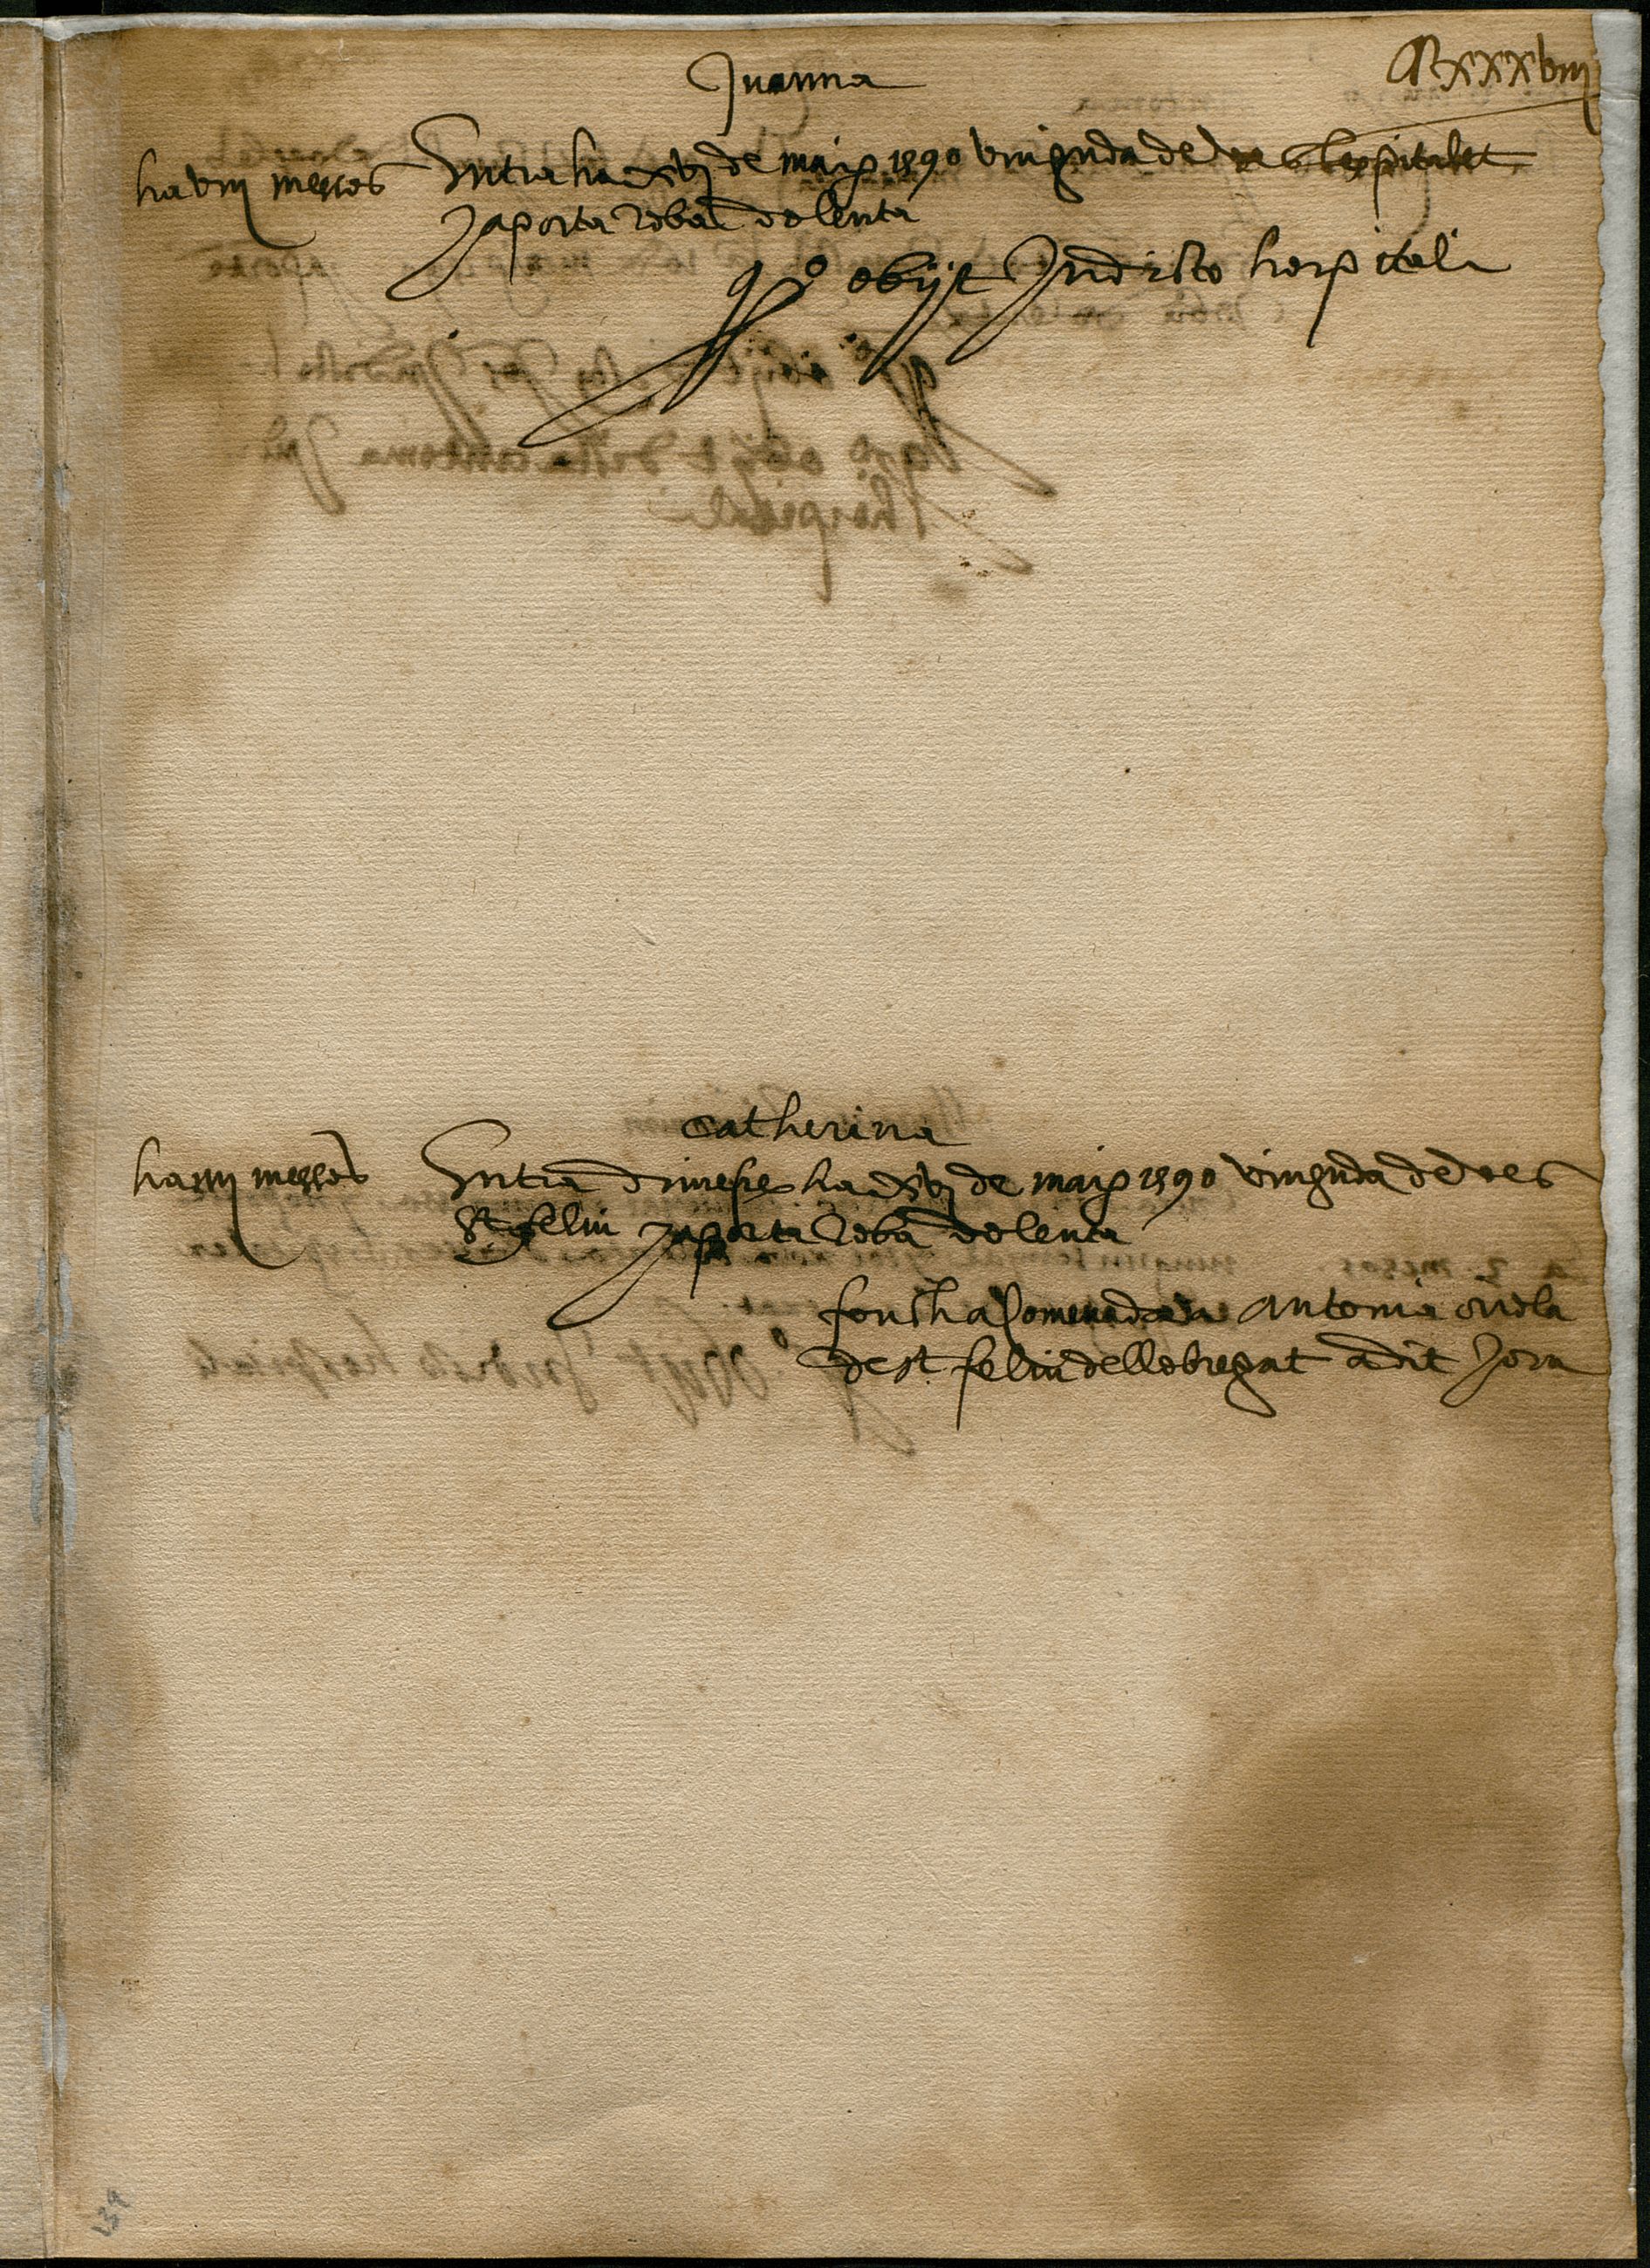 Juanna
CRxxxviii
ha viii messos Intra ha xvj de maig 1590 vinguda de des lespitalet
y aporta roba dolenta
obijt Jn dicto hospitali
Catherina
ha messos Intra dimecres ha xvj de maig 1590 vinguda de des
St feliu y aporta roba dolenta
fonch a Comenada a Antonia
de St feliu de llobregat a dit Jorn
139